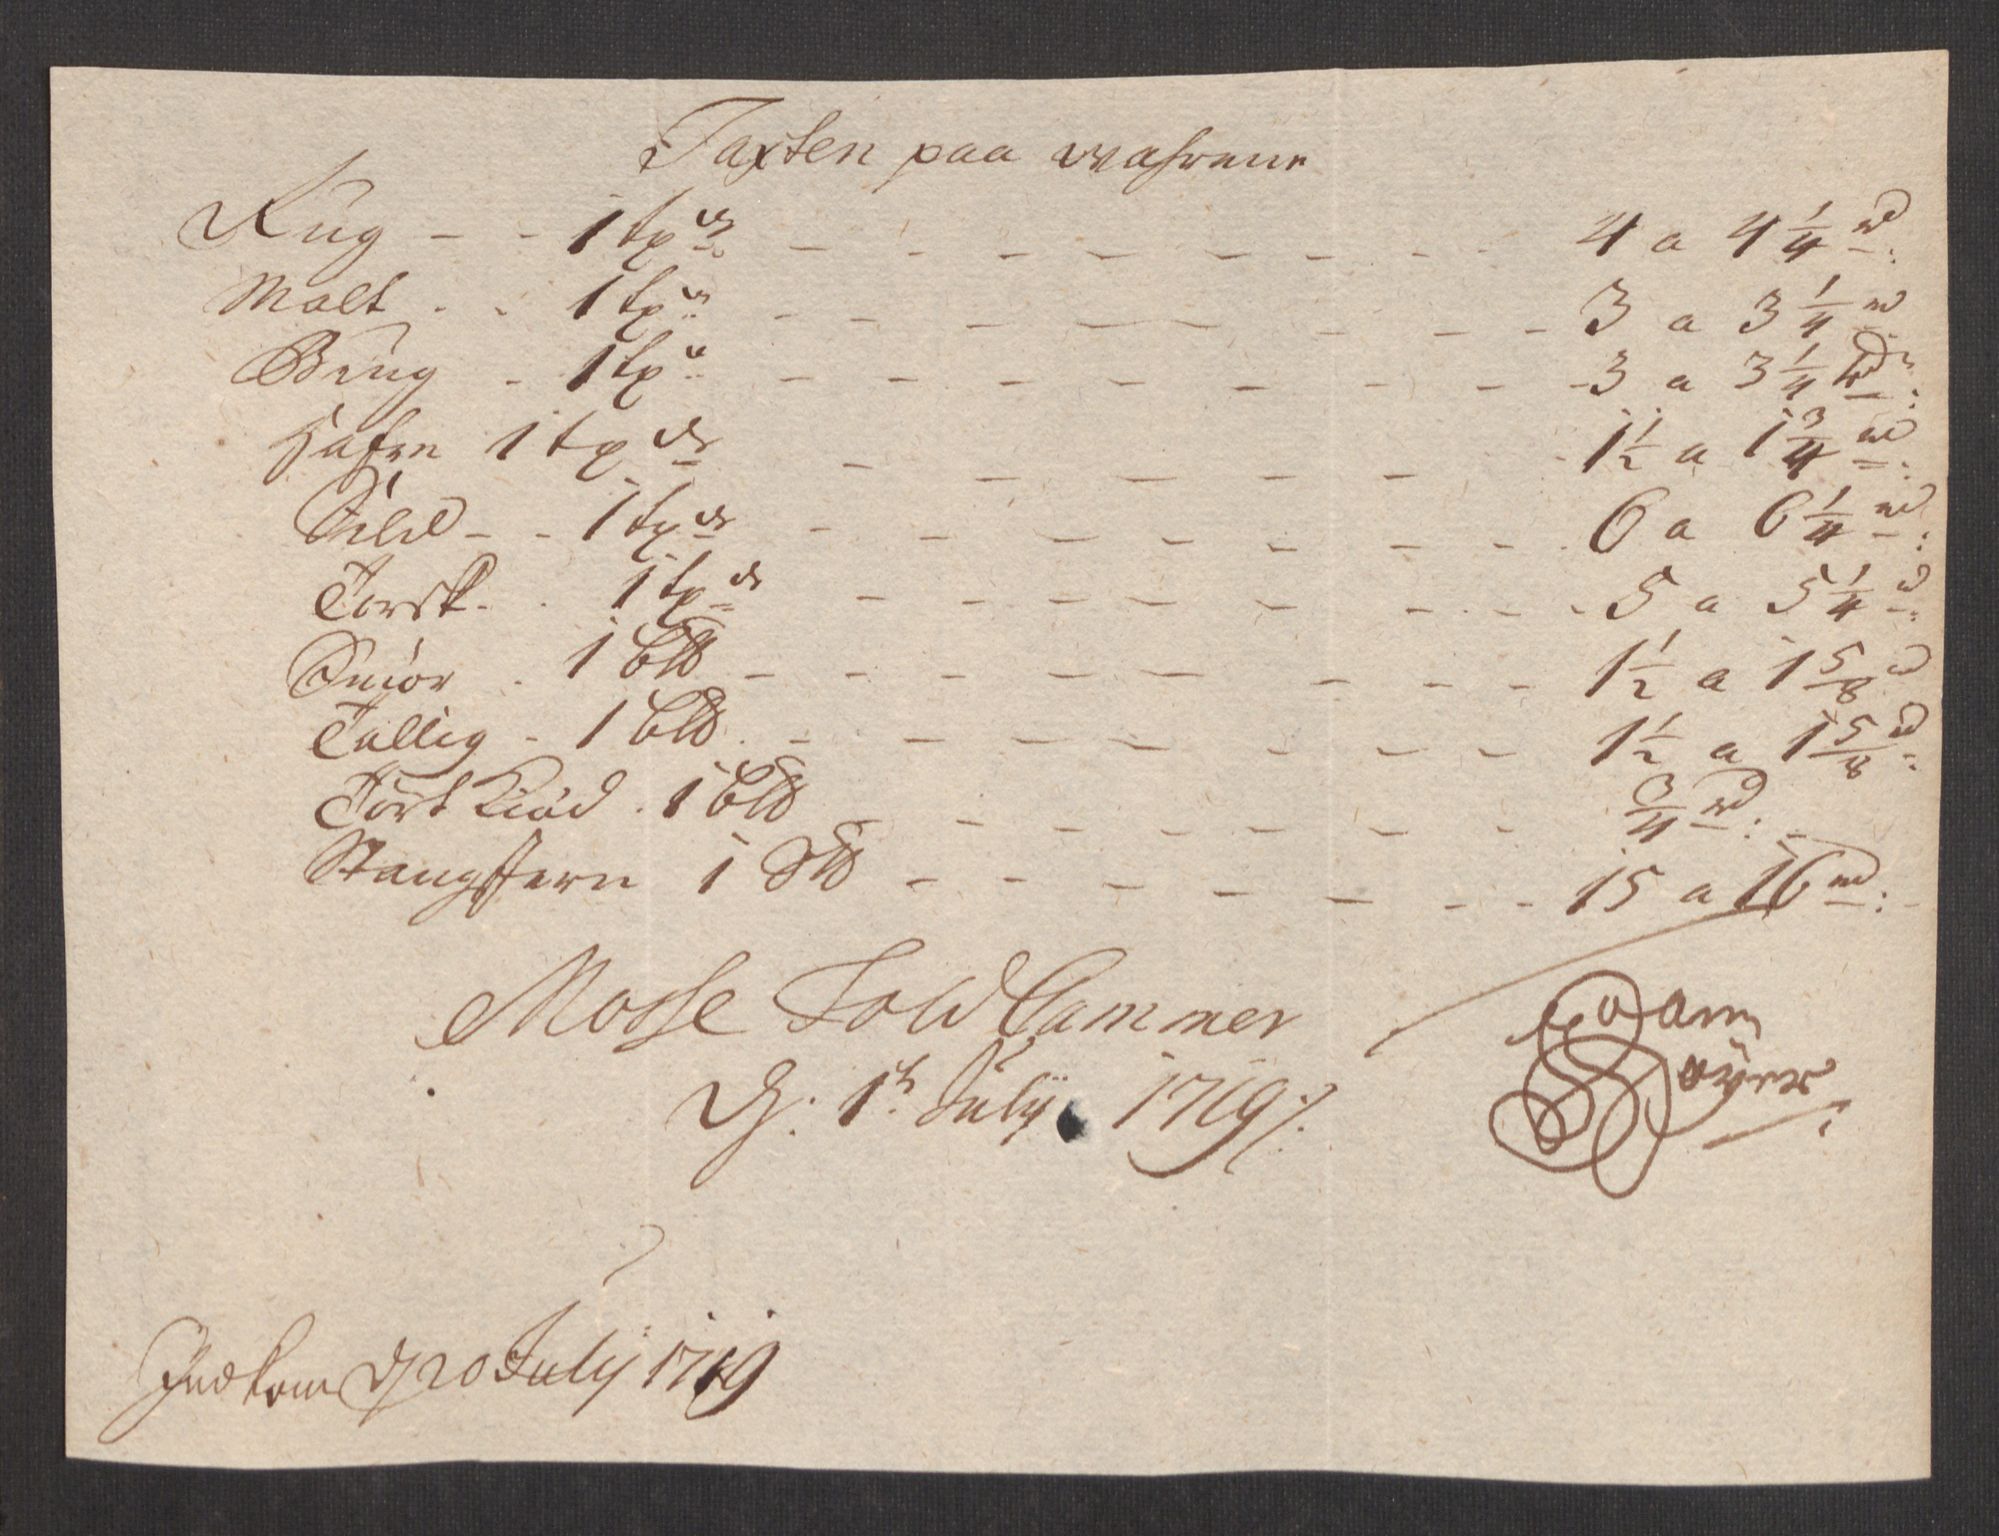 Taxten paa wahrene
Rug - - 1 tr - - - 4 a 4 1/4 rd:
Malt . . 1 tr - - - 3 a 3 1/4 rd
Biug . 1 tr - - - 3 a 3 1/4 rd:
Hafre 1 tr - - - 1 1/2 a 1 3/4 rd:
Sild - - 1 tr - - - 6 a 6 1/4 rd:
Torsk . . 1 tr - - - 5 a 5 1/4 rd:
Smiör . 1 blb - - - 1 1/2 a 1 5/8 rd
Tallig . 1 blb - - - 1 1/2 a 1 5/8 rd:
Tört Kiöd . 1 blb - - - 3/4 rd:
Stangjern 1 Slb - - - 15 a 16 rd:
Mosse Told Cammer
d: 1t July 1719
Indkom d 20 July 1719